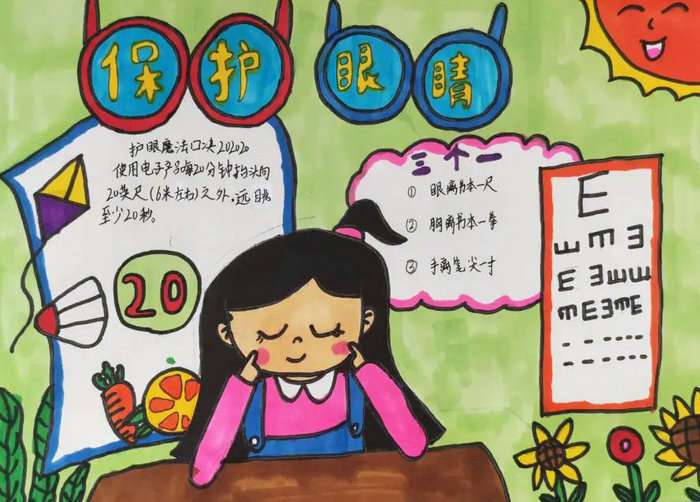 保护眼睛
护眼魔法口诀202020
使用电子产品每20分钟抬头向
20英尺(6米左右)之外,远眺
至少20秒。
20
三个一
① 眼离书本一尺
② 胸离书本一拳
③ 手离笔尖一寸
E
E m E
E E E E
E m E m E